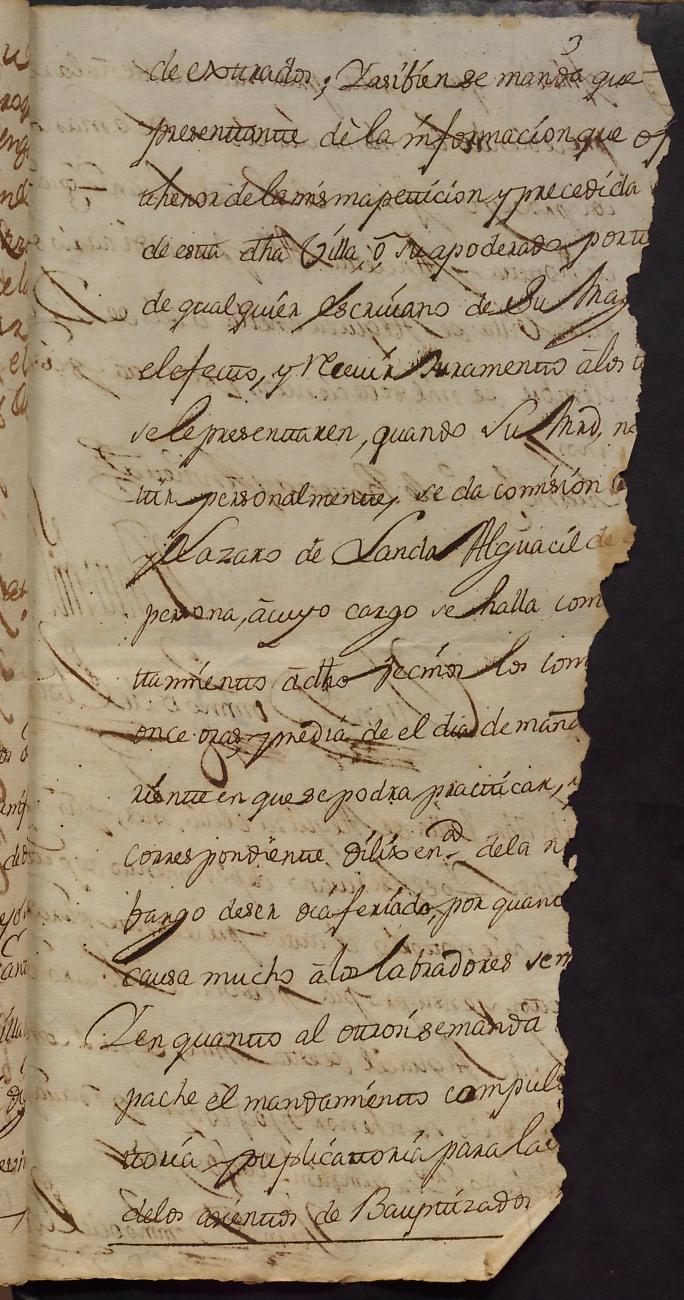 3
de extrados; Yasibien se manda que
presentante dè la informacion que of
thenor de la misma peticion y precedida
de esta dha Villa, ô su apoderado por te
de qualquier Escrivano de Su Mag
el efecto, y recivir Juramento â los t
se le presentaren, quando Su Mrd, no
personalmente, se da comision
y Lazaro de Landa Alguacil de
persona, â cuyo cargo se halla com
tamiento â dho vecinos los com
once oras y media de el dia de maña
riente en que se podra practicar, y
correspondiente dilixen.ª de la n
bargo de ser feriado, por quant
causa mucho â los labradores sem
Yen quanto al otrosi se manda
pache el mandamiento compuls
toria y suplicattoria para la
delos asientos de Bauptizados